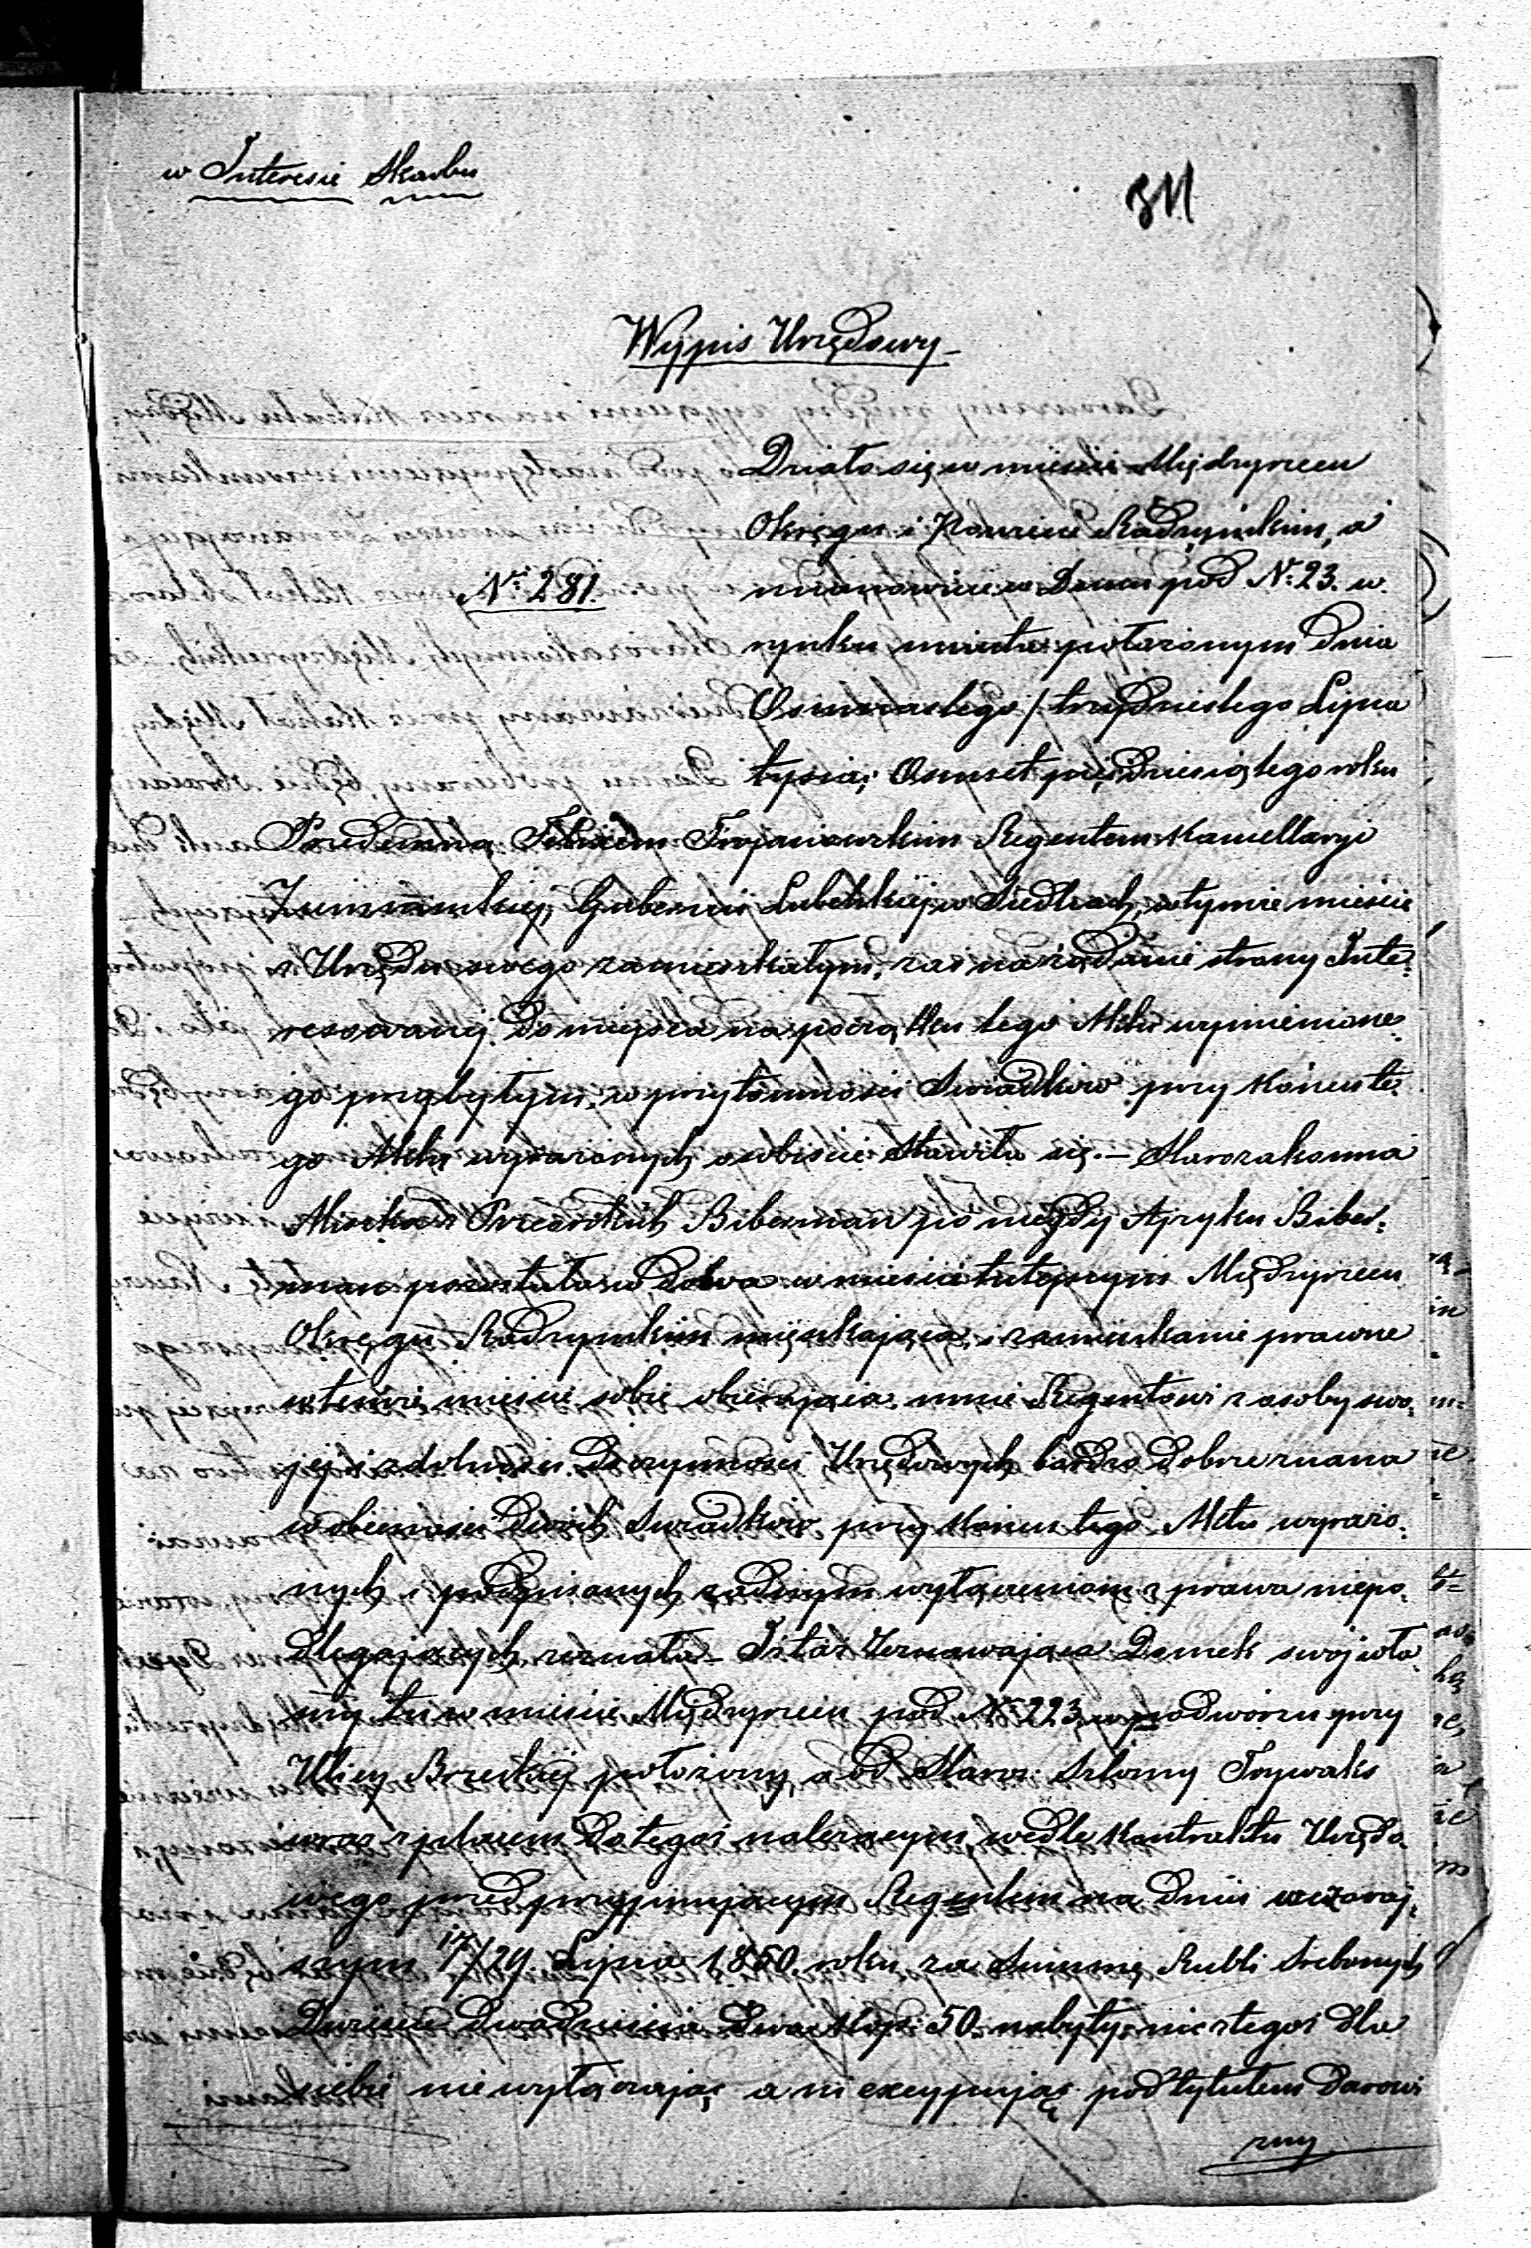 w Interesie Skarbu
311
Wypis Urzędowy
Działo się w mieście Międzyrzecu
Okręgu i Powiecie Radzyńskim, a
No 281.
mianowicie w Domu pod No 23. w
rynku miasta położonym Dnia
Osmnastego / trzydziestego Lipca
tysiąc Osmset pięćdziesiątego roku
Przedemną Felixem Trojanowskim Regentem Kancellaryi
Ziemiańskiej Gubernii Lubelskiej w Siedlcach, w tymże mieście
z Urzędu swego zamieszkałym, zaś na żądanie strony Inte=
ressowanej do miejsca na początku tego Aktu wymienione=
go przybyłym, w przytomności Świadków przy końcu te=
go Aktu wyrażonych osobiście stawiła się. — Starozakonna
Biberman po niegdy Biber=
man pozostała wdowa w mieście tutejszym Międzyrzecu
Okręgu Radzyńskim mieszkająca, i zamieszkanie prawne
w temże mieście sobie obierająca, mnie Regentowi z osoby swo=
jej i zdolności do czynności Urzędowych bardzo dobrze znana
w obecności dwóch Świadków przy końcu tego Aktu wyrażo=
nych i podpisanych żadnym wyłączeniom z prawa niepo=
dlegających, zeznała — Iż taż Zeznawająca Domek swój wła
sny tu w mieście Międzyrzecu pod No 223, w podwórzu przy
Ulicy Brzeskiej położony, a od Staroz: Szlomy Trywaks
wraz z placem do tegoż należącym, wedle Kontraktu Urzędo
wego przed przyjmującym Regentem na dniu wczoraj=
szym 17/29. Lipca 1850. roku za Summę Rubli Srebrnych
Dwieście Dwadzieścia Dwa Kop: 50. nabyty, nic z tegoż dla
siebie nie wyłączając ani excypując pod tytułem Darowi
zny